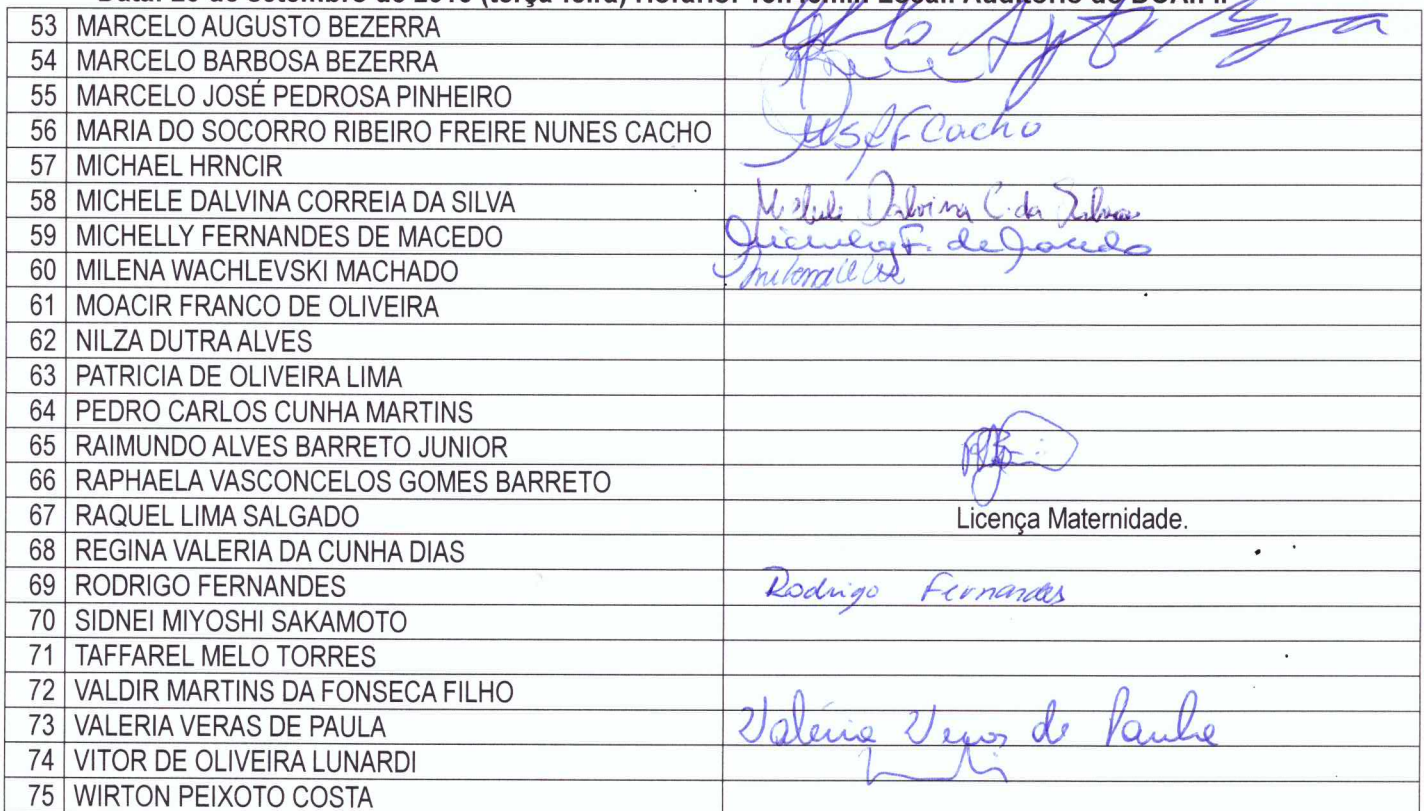 53 MARCELO AUGUSTO BEZERRA
54 MARCELO BARBOSA BEZERRA
55 MARCELO JOSÉ PEDROSA PINHEIRO
56 MARIA DO SOCORRO RIBEIRO FREIRE NUNES CACHO Cacho
57 MICHAEL HRNCIR
58 MICHELE DALVINA CORREIA DA SILVA Michele Dalvina C. da Silva
59 MICHELLY FERNANDES DE MACEDO Michelly F. de Macedo
60 MILENA WACHLEVSKI MACHADO
61 MOACIR FRANCO DE OLIVEIRA
62 NILZA DUTRA ALVES
63 PATRICIA DE OLIVEIRA LIMA
64 PEDRO CARLOS CUNHA MARTINS
65 RAIMUNDO ALVES BARRETO JUNIOR
66 RAPHAELA VASCONCELOS GOMES BARRETO
67 RAQUEL LIMA SALGADO Licença Maternidade.
68 REGINA VALERIA DA CUNHA DIAS
69 RODRIGO FERNANDES Rodrigo Fernandes
70 SIDNEI MIYOSHI SAKAMOTO
71 TAFFAREL MELO TORRES
72 VALDIR MARTINS DA FONSECA FILHO
73 VALERIA VERAS DE PAULA Valéria Veras de Paula
74 VITOR DE OLIVEIRA LUNARDI
75 WIRTON PEIXOTO COSTA